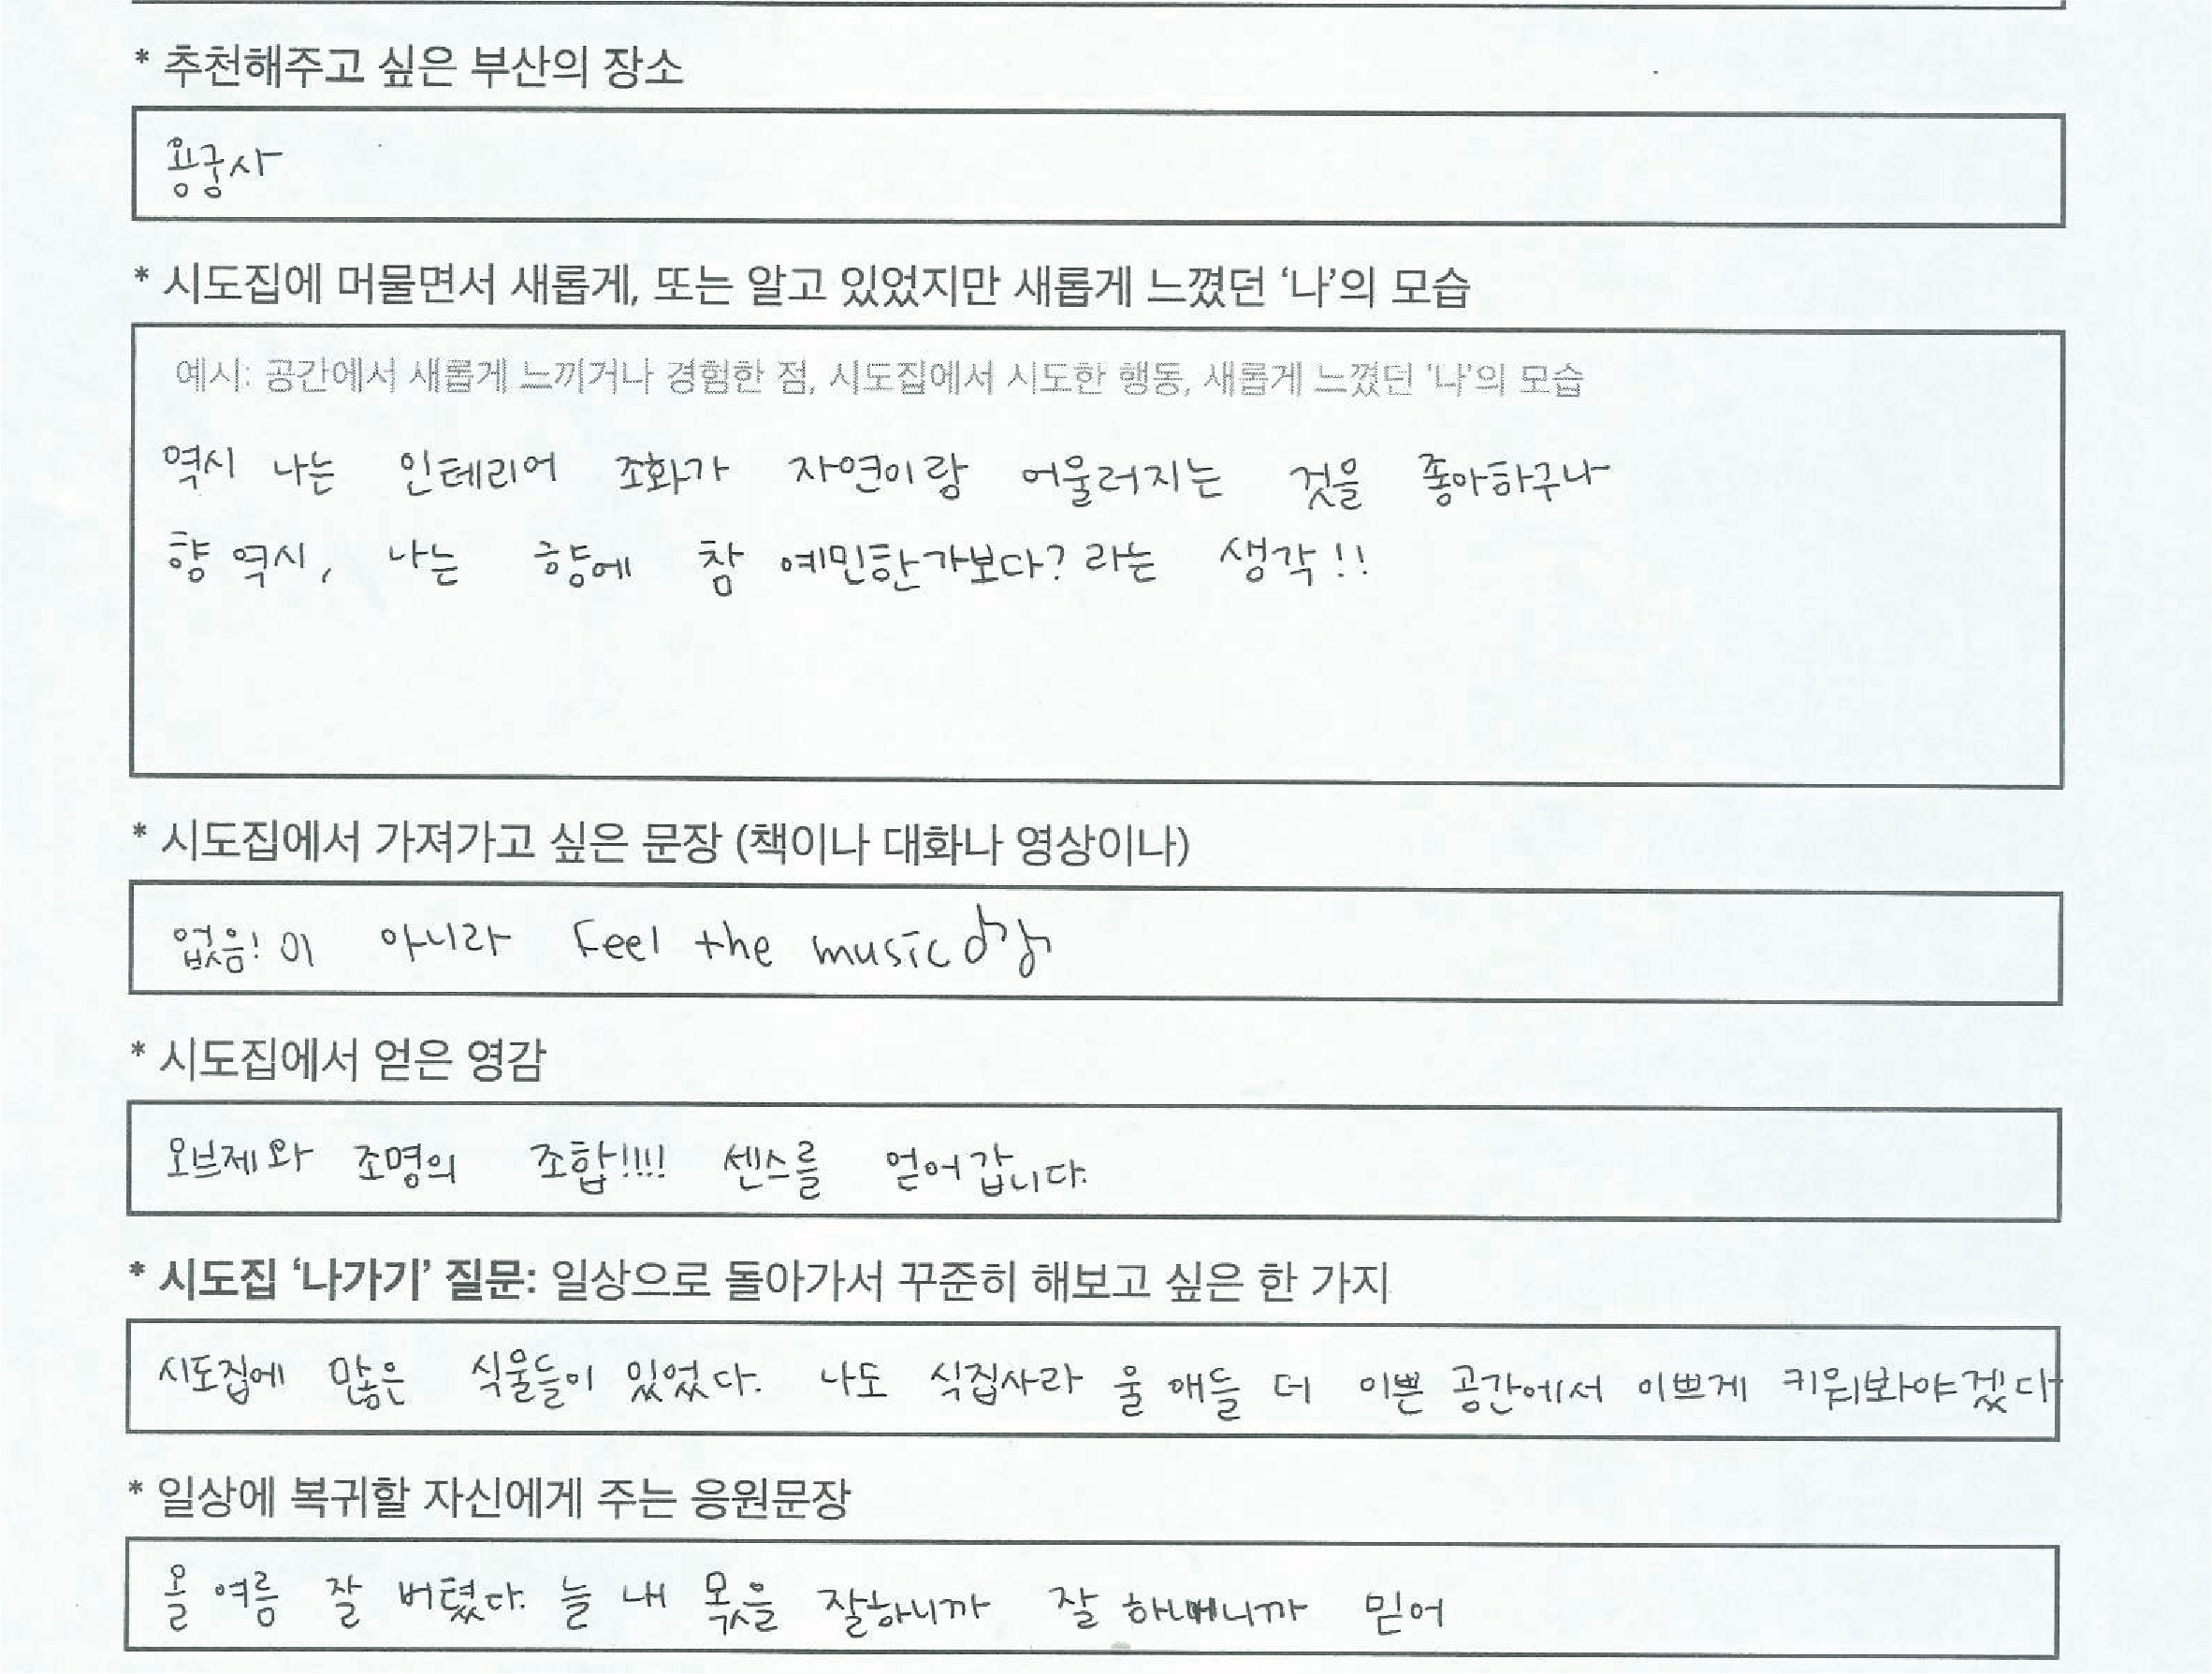 * 추천해주고 싶은 부산의 장소
용궁사
* 시도집에 머물면서 새롭게, 또는 알고 있었지만 새롭게 느꼈던 ‘나’의 모습
예시: 공간에서 새롭게 느끼거나 경험한 점, 시도집에서 시도한 행동, 새롭게 느꼈던 ‘나’의 모습
역시 나는 인테리어 조화가 자연이랑 어울러지는 것을 좋아하구나
향 역시, 나는 향에 참 예민한가보다? 라는 생각!!
* 시도집에서 가져가고 싶은 문장 (책이나 대화나 영상이나)
없음! 이 아니라 Feel the music ♪♪
* 시도집에서 얻은 영감
오브제와 조명의 조합!!!! 센스를 얻어갑니다.
* 시도집 ‘나가기’ 질문: 일상으로 돌아가서 꾸준히 해보고 싶은 한 가지
시도집에 많은 식물들이 있었다. 나도 식집사라 울 애들 더 이쁜 공간에서 이쁘게 키워봐야겠다
* 일상에 복귀할 자신에게 주는 응원문장
올 여름 잘 버텼다. 늘 내 몫을 잘하니까 잘 믿어